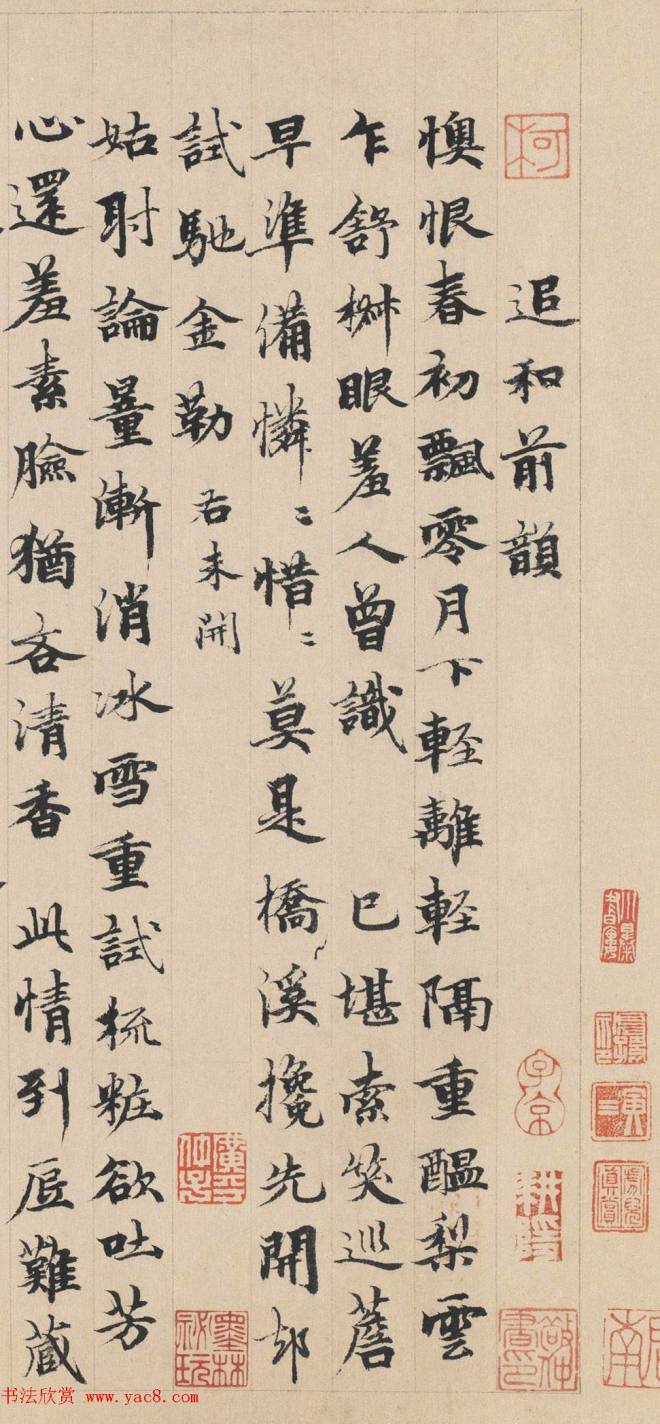 追和前韻
懊恨春初飄零月下輕離輕隔重醞梨雲
乍舒椒眼羞人曾識 已堪索笑巡簷
早準備憐〻惜〻莫是橋溪攙先開却
試馳金勒 右未開
姑射論量漸消冰雪重試梳粧欲吐芳
心還羞素臉猶吝清香 此情到底難藏
柯
子京
墨林秘玩
书法欣赏 www.yac8.com